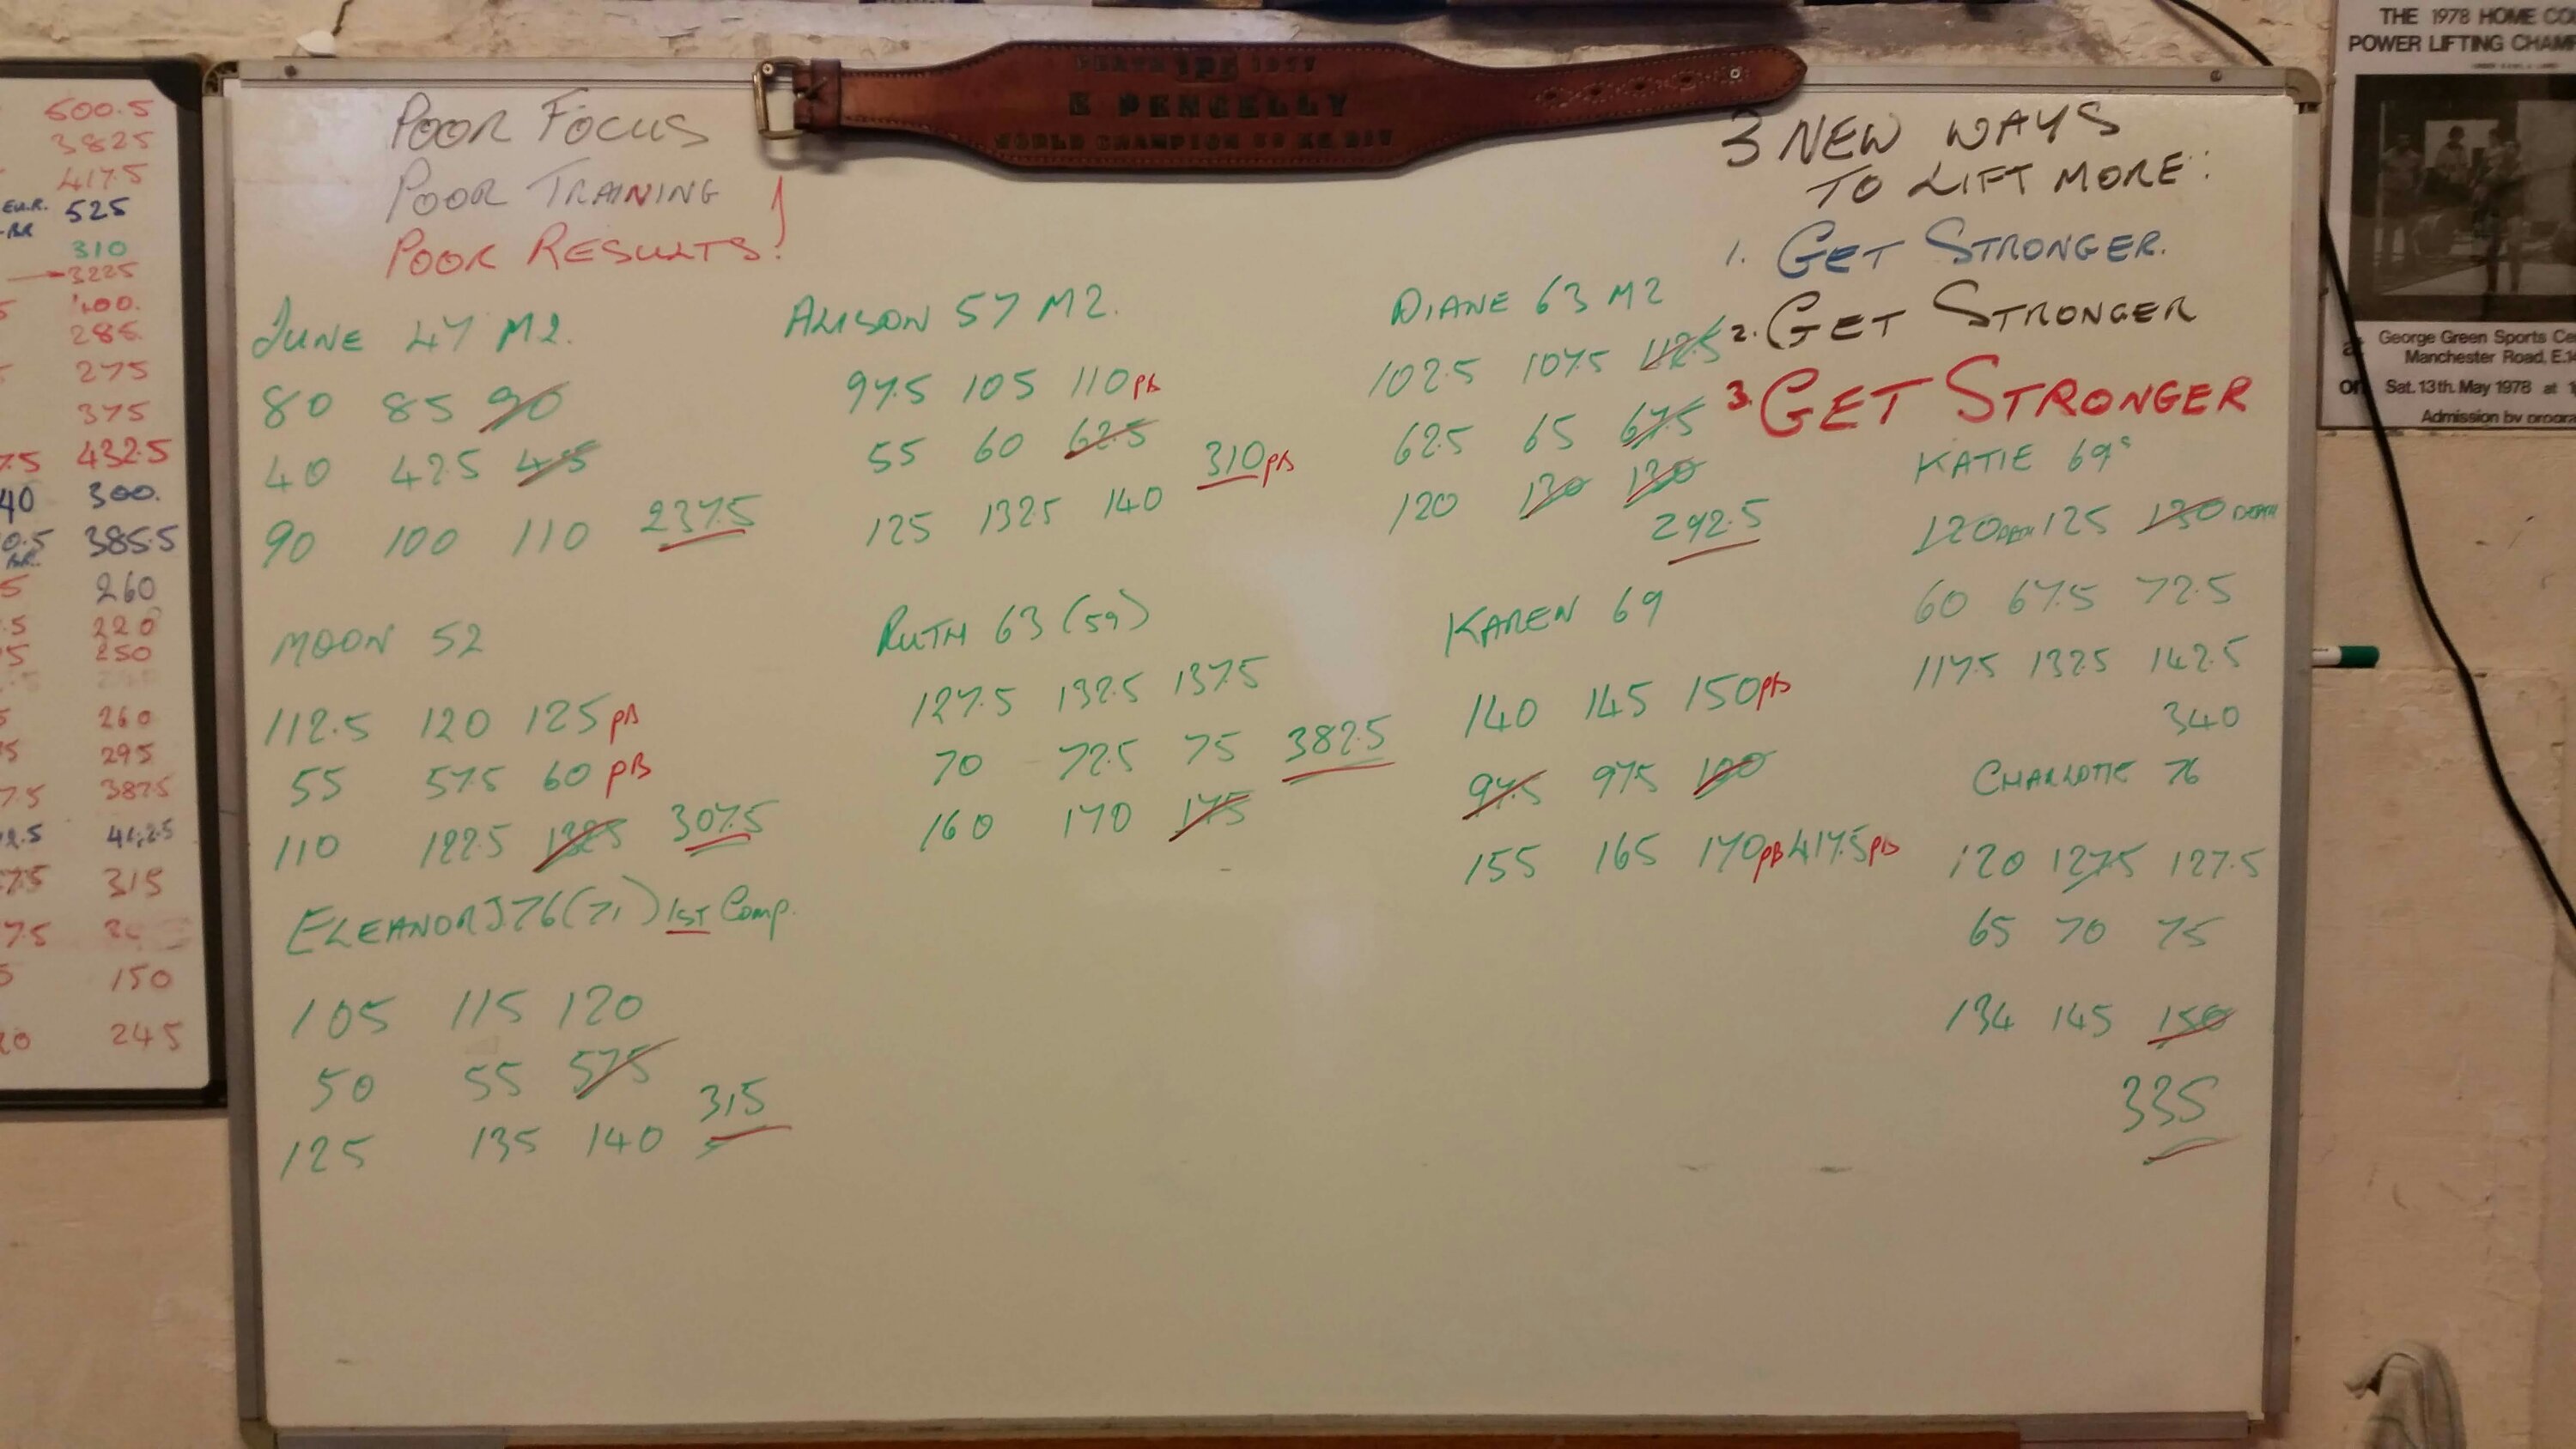 500.5
3825
417.5
EUR. 525
BR
310
3225
400.
285.
275
375
7.5 432.5
40 300.
0.5 385.5
BR.
5 260
.5 220
5 250
5 260
5 295
7.5 3875
2.5
7.5 315
7.5
5 150
20 245
POOR FOCUS
POOR TRAINING
POOR RESULTS!
E PENGELLY
WORLD CHAMPION
3 NEW WAYS
TO LIFT MORE:
1. GET STRONGER.
2. GET STRONGER
3. GET STRONGER
JUNE 47 M2.
80 85 90
40 42.5 45
90 100 110 237.5
ALISON 57 M2.
97.5 105 110 PB
55 60 62.5
310 PB
125 132.5 140
DIANE 63 M2
102.5 107.5 112.5
62.5 65 67.5
120 130 130
292.5
KATIE 69
120 DEPTH 125 130 DEPTH
60 67.5 72.5
117.5 132.5 142.5
340
MOON 52
112.5 120 125 PB
55 57.5 60 PB
110 122.5 132.5 307.5
RUTH 63 (59)
127.5 132.5 137.5
70 72.5 75 382.5
160 170 175
KAREN 69
140 145 150 PB
97.5 97.5 100
155 165 170 PB 417.5 PB
CHARLOTTE 76
120 127.5 127.5
65 70 75
134 145 150
335
ELEANOR J 76 (71) 1ST Comp.
105 115 120
50 55 57.5
125 135 140 315
THE 1978 HOME CO
POWER LIFTING CHAM
George Green Sports Ce
at Manchester Road, E.14
on Sat. 13th. May 1978 at 1
Admission by progra